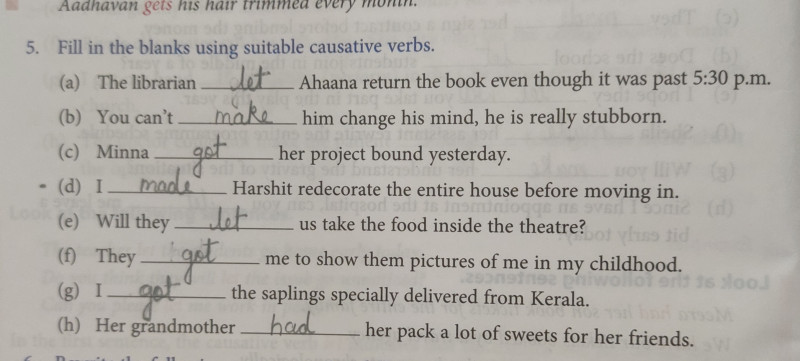 Aadhavan gets his hair trimmed every month.
5. Fill in the blanks using suitable causative verbs.
(a) The librarian let Ahaana return the book even though it was past 5:30 p.m.
(b) You can't make him change his mind, he is really stubborn.
(c) Minna got her project bound yesterday.
(d) I made Harshit redecorate the entire house before moving in.
(e) Will they let us take the food inside the theatre?
(f) They got me to show them pictures of me in my childhood.
(g) I got the saplings specially delivered from Kerala.
(h) Her grandmother had her pack a lot of sweets for her friends.